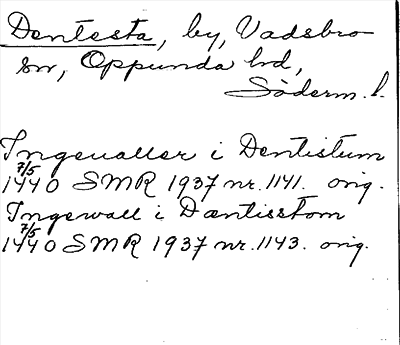 Dentesta, by, Vadsbro
sn, Oppunda hd,
Söderm. l.
Ingeualler i Dentistum
7/5 1440 SMR 1937 nr. 1141. orig.
Ingewall i Dæntisstom
7/5 1440 SMR 1937 nr. 1143. orig.